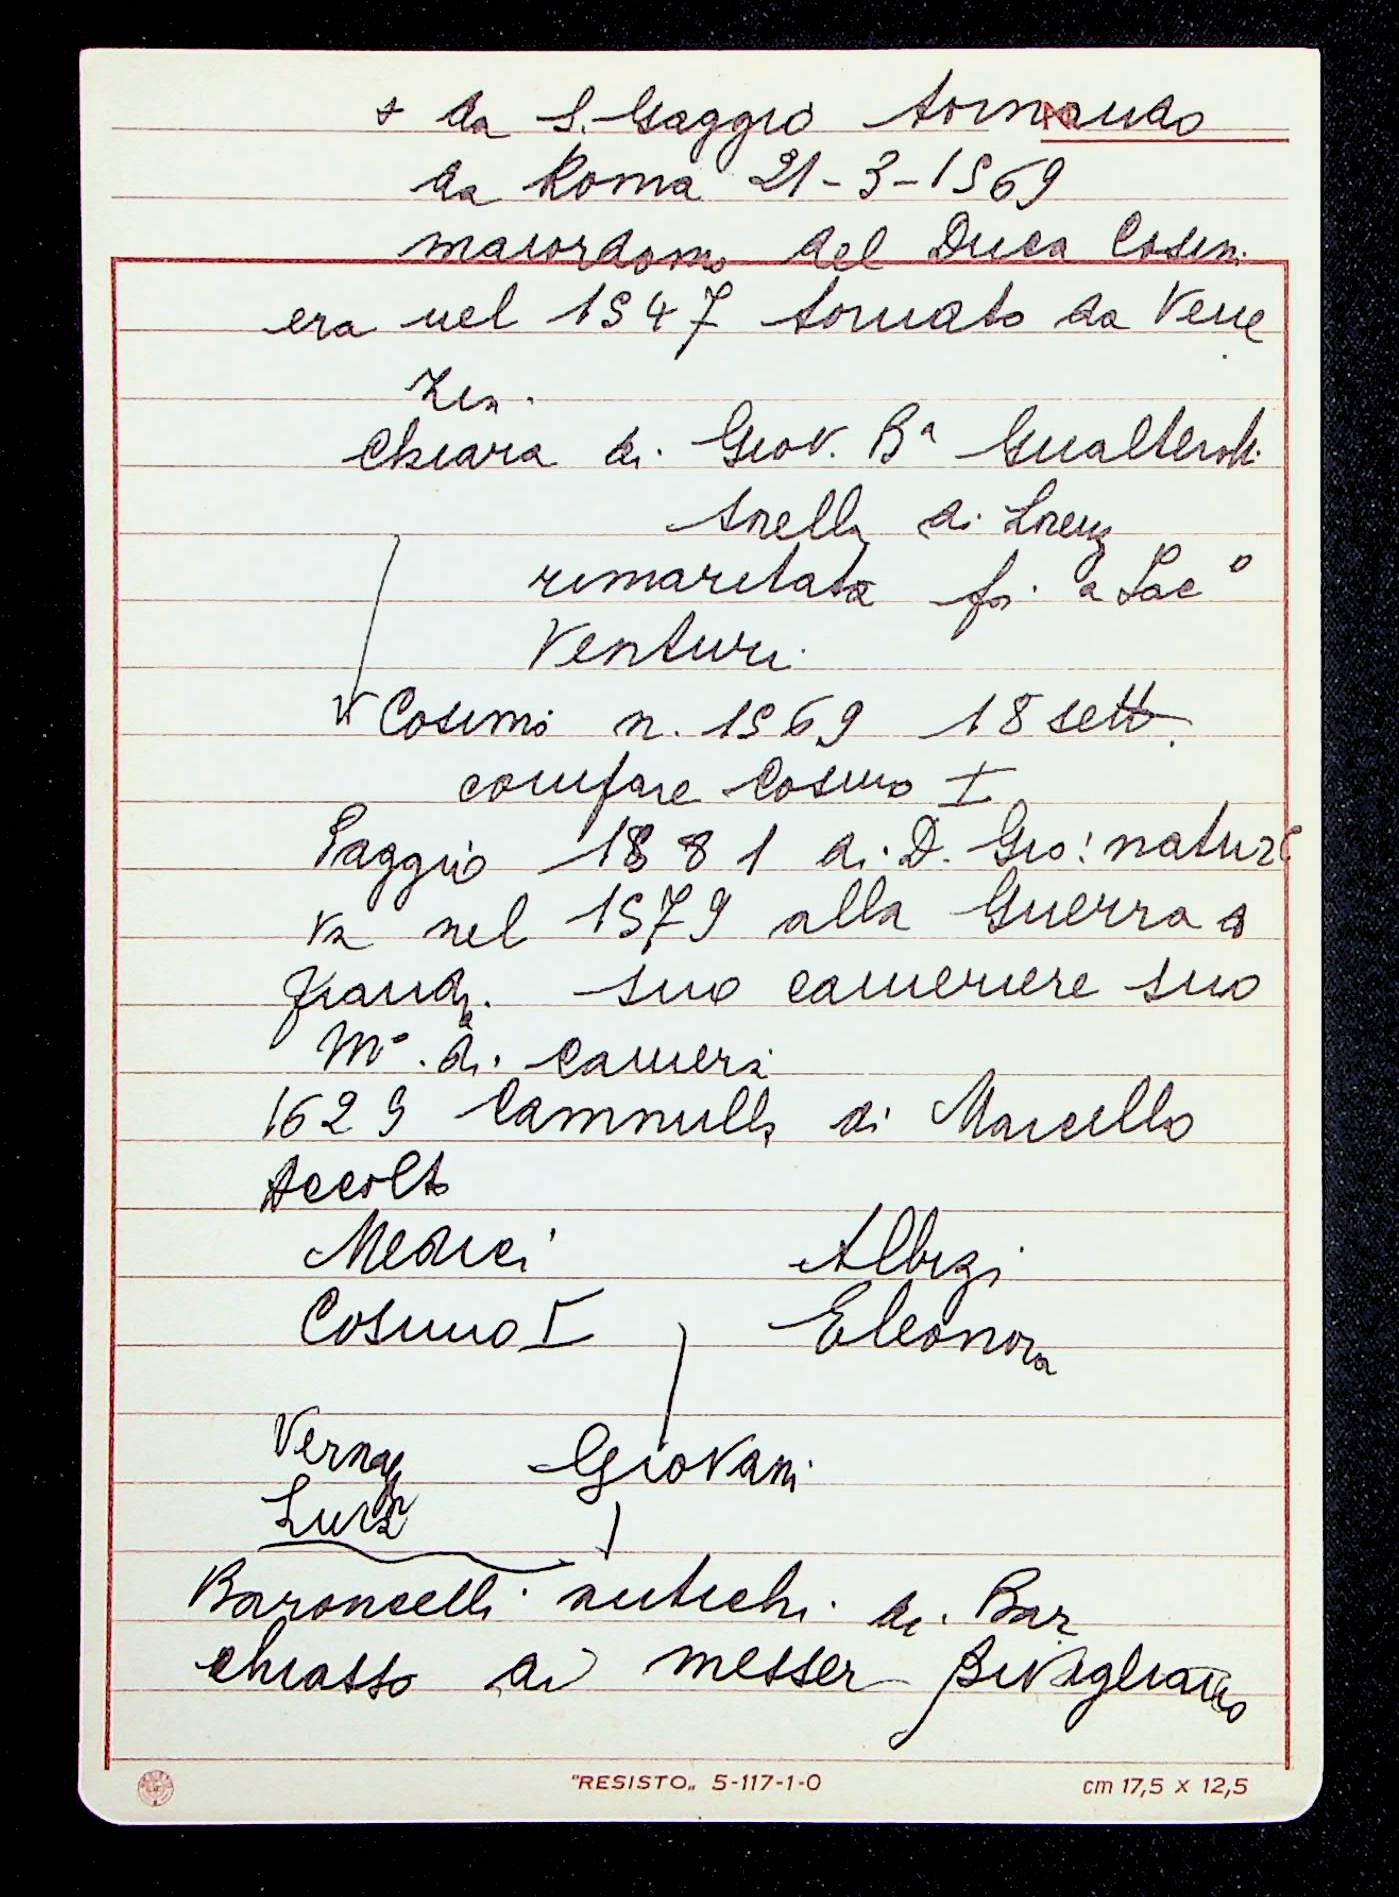 + da S. Gaggio tornando
da Roma 21-3-1569
maiordomo del Duca Cosim.
era nel 1547 tornato da Vene
zia.
Chiara di Giov. Bª Gualterotti
sorella di Lorenz
rimaritata poi a Iacº
Venturi
Cosimo n. 1569 18 sett.
compare Cosimo I
Paggio 1881 di D. Gio: natur
va nel 1579 alla Guerra
fiand. suo cameriere suo
Mº. di camera
1629 Cammilla di Marcello
Accolto
Medici Albizi
Cosimo I Eleonora
Giovani
Baroncelli antichi di Bar
chiasso di messer Bivigliano
"RESISTO„ 5-117-1-0 cm 17,5 x 12,5